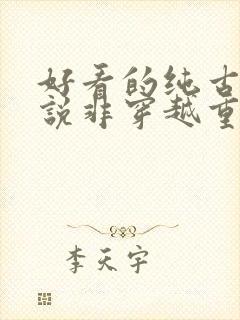 好看的纯古
說非穿越重
李天宇